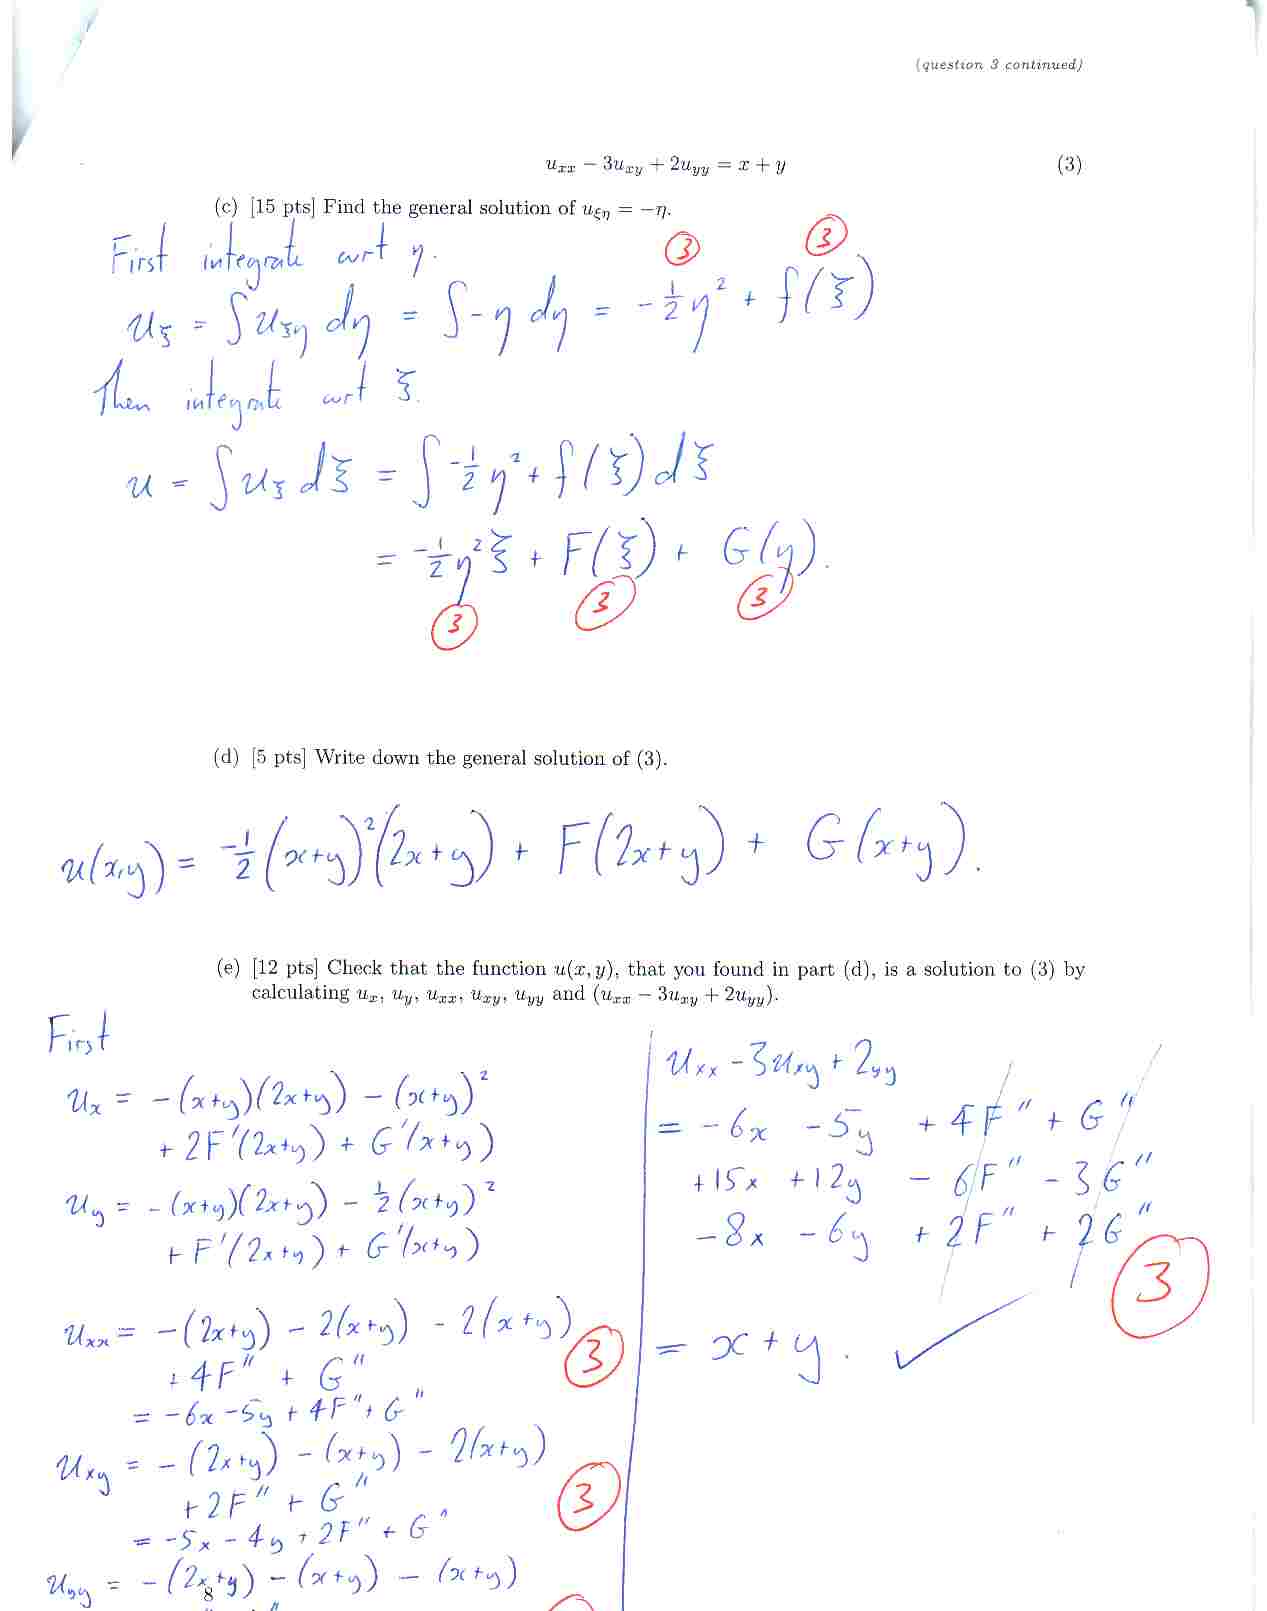 (question 3 continued)
u_{xx} − 3u_{xy} + 2u_{yy} = x + y (3)
(c) [15 pts] Find the general solution of u_{ξη} = −η.
First integrate wrt η.
3 3
u_ξ = ∫u_{ξη} dη = ∫-η dη = -½η² + f(ξ)
Then integrate wrt ξ.
u = ∫u_ξ dξ = ∫-½η² + f(ξ) dξ
= -½η²ξ + F(ξ) + G(η).
3 3 3
(d) [5 pts] Write down the general solution of (3).
u(x,y) = -½(x+y)²(2x+y) + F(2x+y) + G(x+y).
(e) [12 pts] Check that the function u(x, y), that you found in part (d), is a solution to (3) by
calculating u_x, u_y, u_{xx}, u_{xy}, u_{yy} and (u_{xx} − 3u_{xy} + 2u_{yy}).
First
u_x = -(x+y)(2x+y) - (x+y)²
+ 2F'(2x+y) + G'(x+y)
u_y = -(x+y)(2x+y) - ½(x+y)²
+ F'(2x+y) + G'(x+y)
u_{xx} = -(2x+y) - 2(x+y) - 2(x+y)
3
+ 4F'' + G''
= -6x -5y + 4F'' + G''
u_{xy} = -(2x+y) - (x+y) - 2(x+y)
3
+ 2F'' + G''
= -5x - 4y + 2F'' + G''
u_{yy} = -(2x+y) - (x+y) - (x+y)
8
u_{xx} - 3u_{xy} + 2_{yy}
= -6x -5y + 4F'' + G''
+15x +12y - 6F'' - 3G''
-8x - 6y + 2F'' + 2G''
3
= x + y. ✓